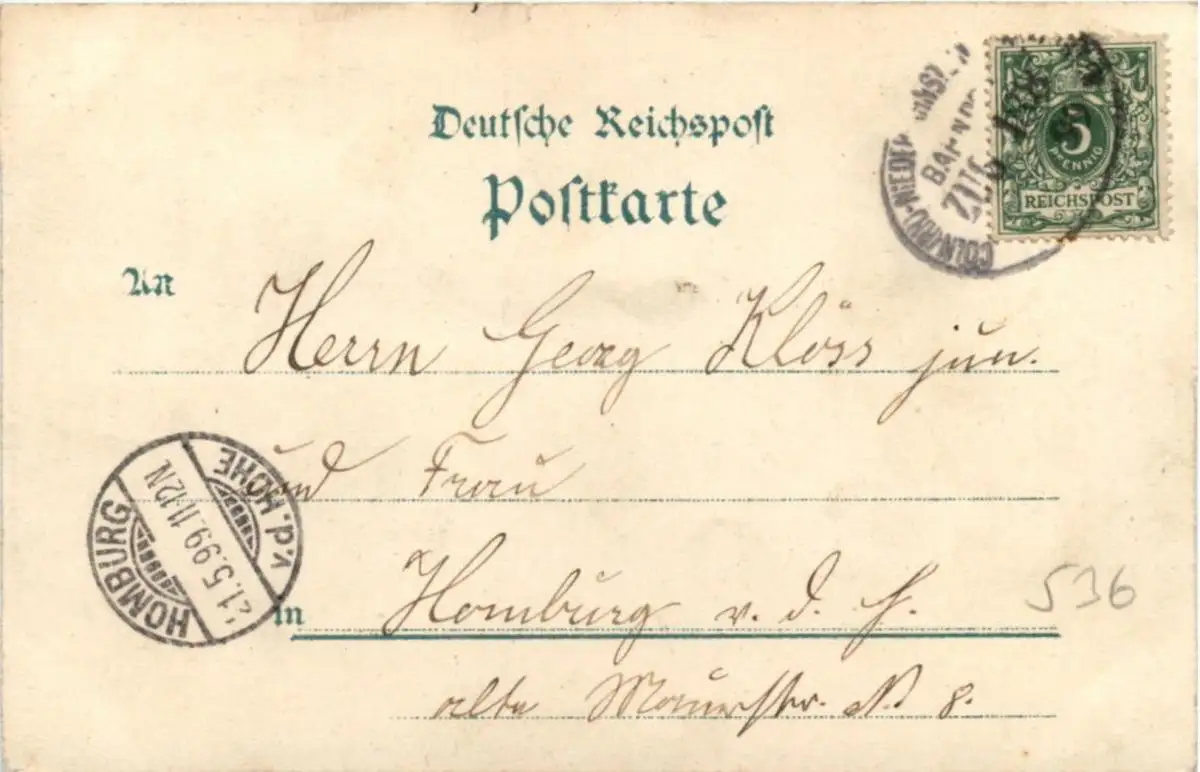 Deutsche Reichspost
Postkarte
BAHNPOST
ZUG
5
PFENNIG
REICHSPOST
An
Herrn Georg Klöss jun.
und Frau
in Homburg v. d. H.
alte Mauerstr. N. 8.
HOMBURG
v.d. HÖHE
21.5.99.11-12N.
536